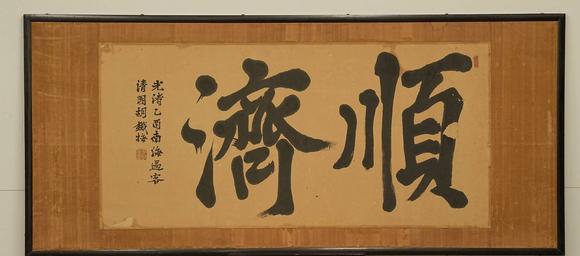 順濟
光緒乙酉南海過客
清國胡鐵梅